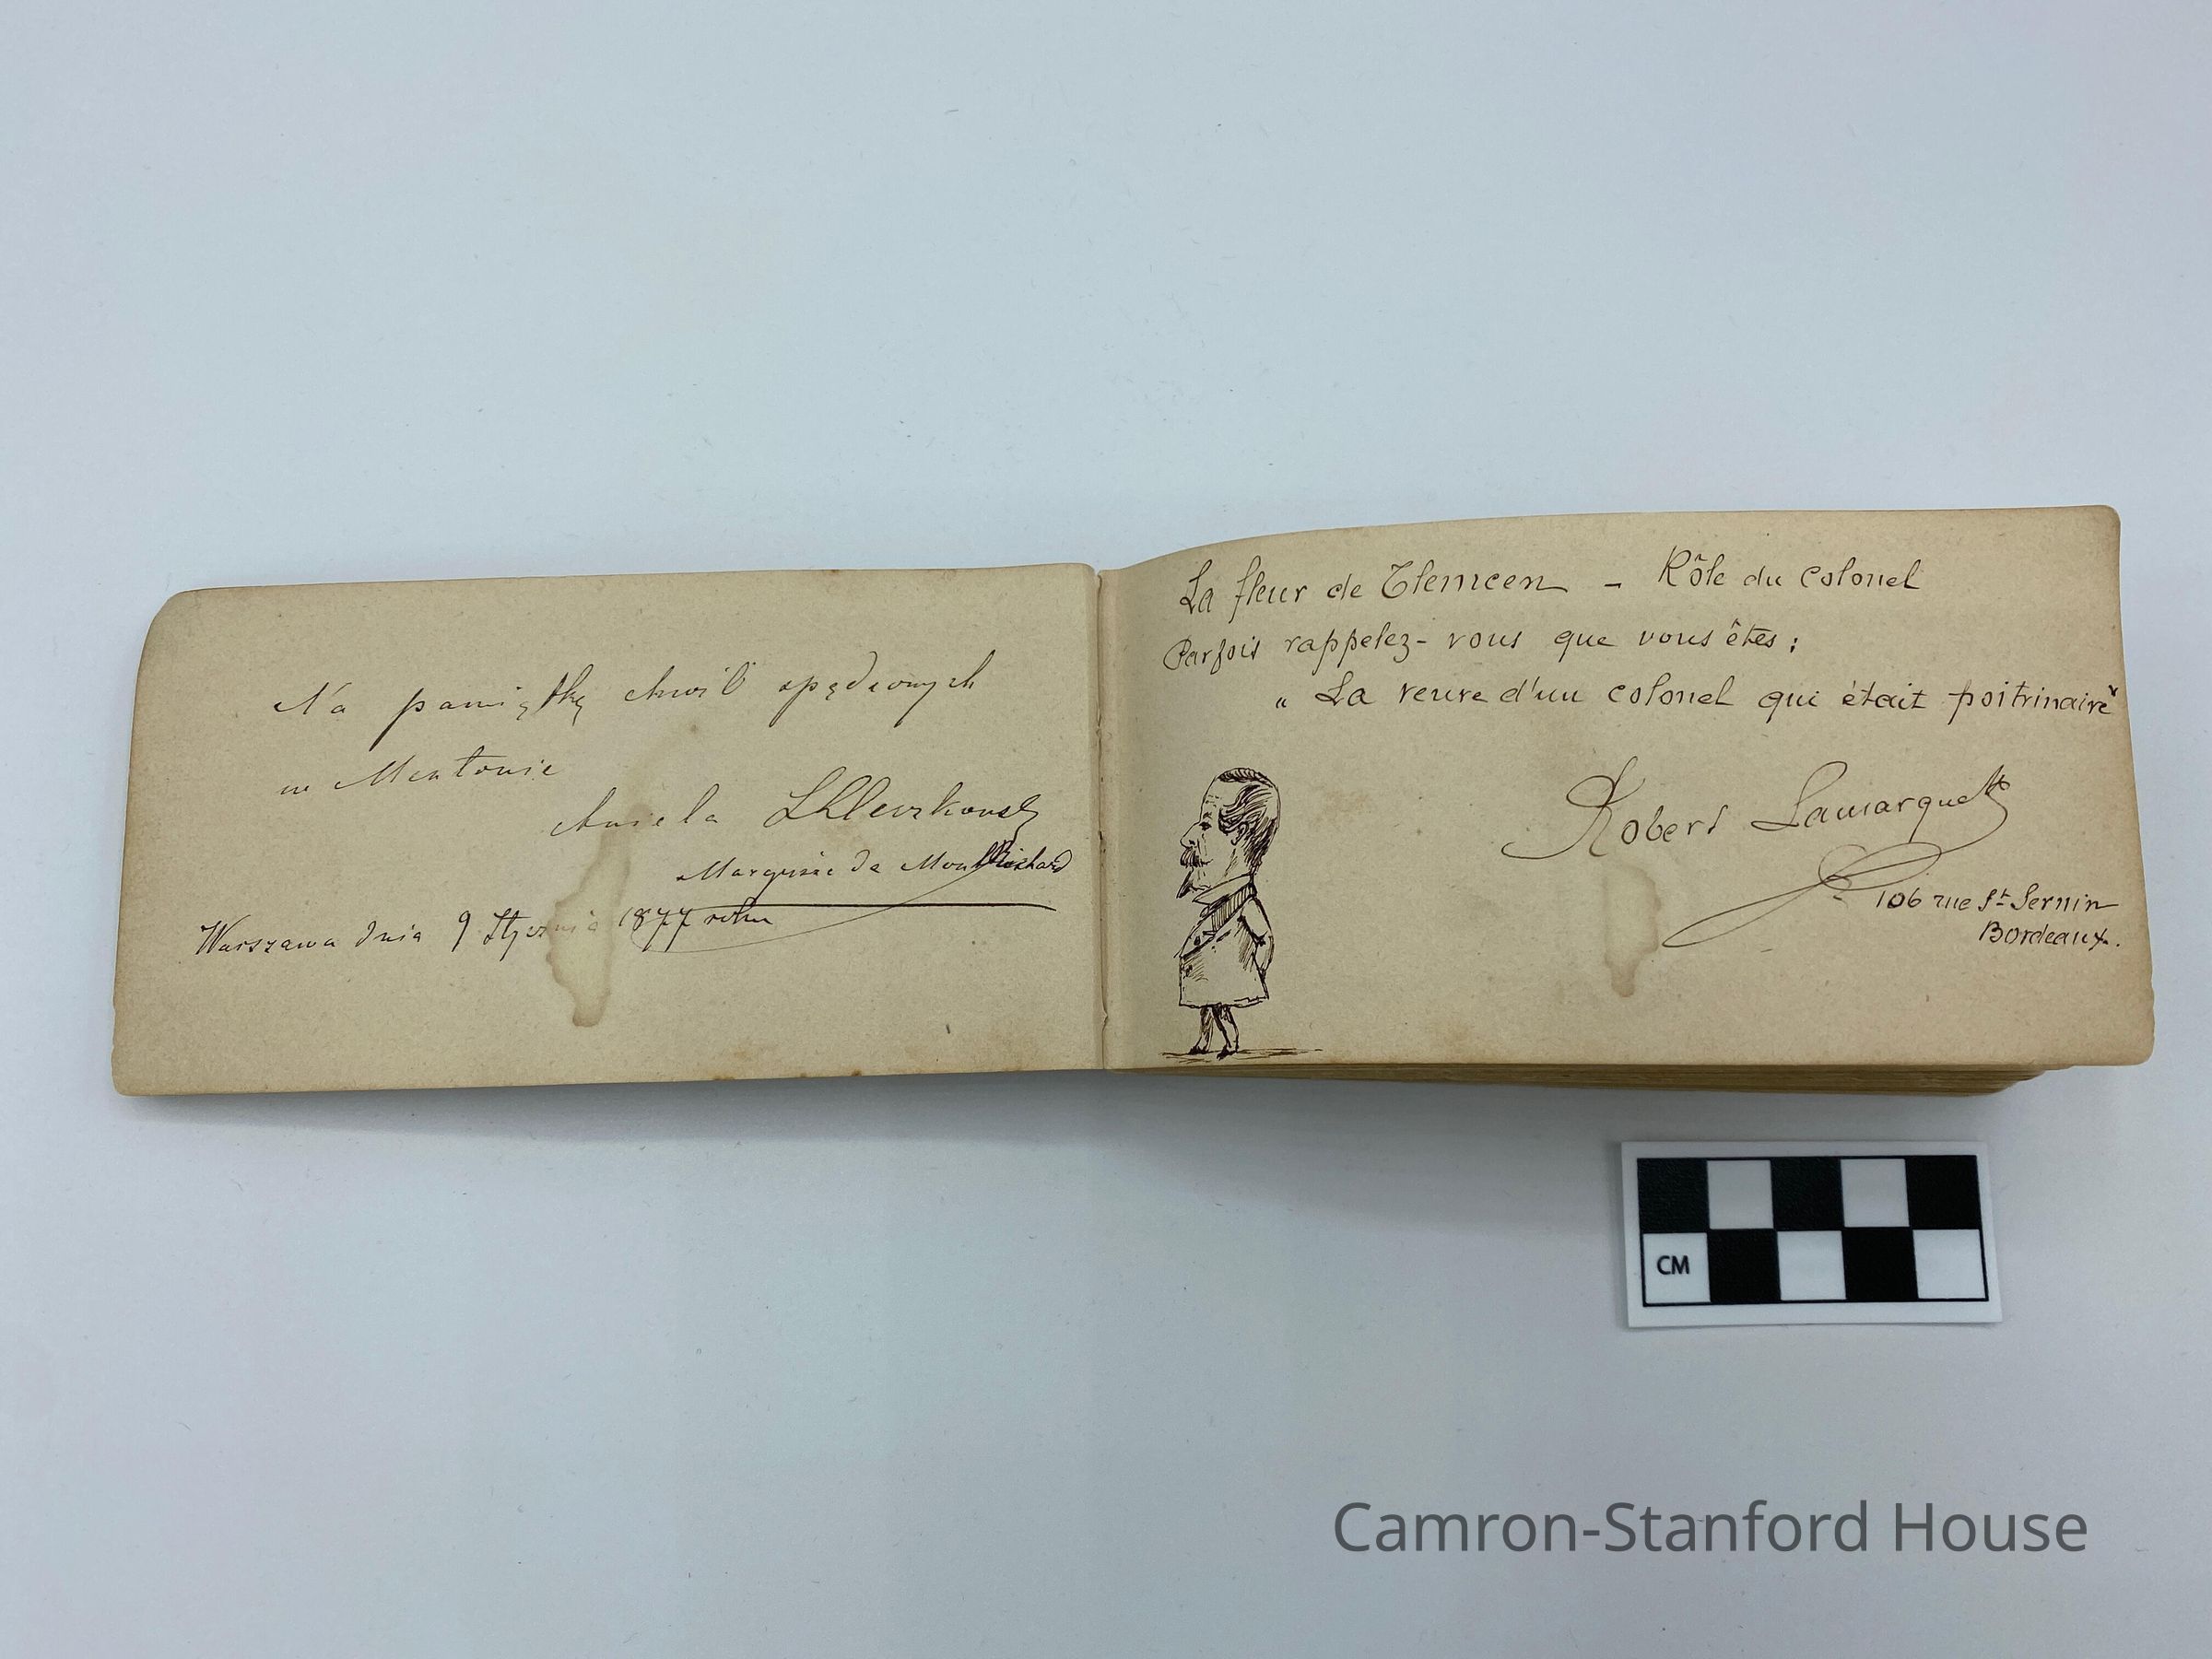 Na pamiątkę chwil spędzonych
w Mentonie
Aniela
Marquise de Montrichard
Warszawa dnia 9 Stycznia 1877 roku
La fleur de Tlemcen - Rôle du colonel
Parfois rappelez-vous que vous êtes :
" La veuve d'un colonel qui était poitrinaire "
Robert Lamarque
106 rue St Sernin
Bordeaux.
CM
Camron-Stanford House